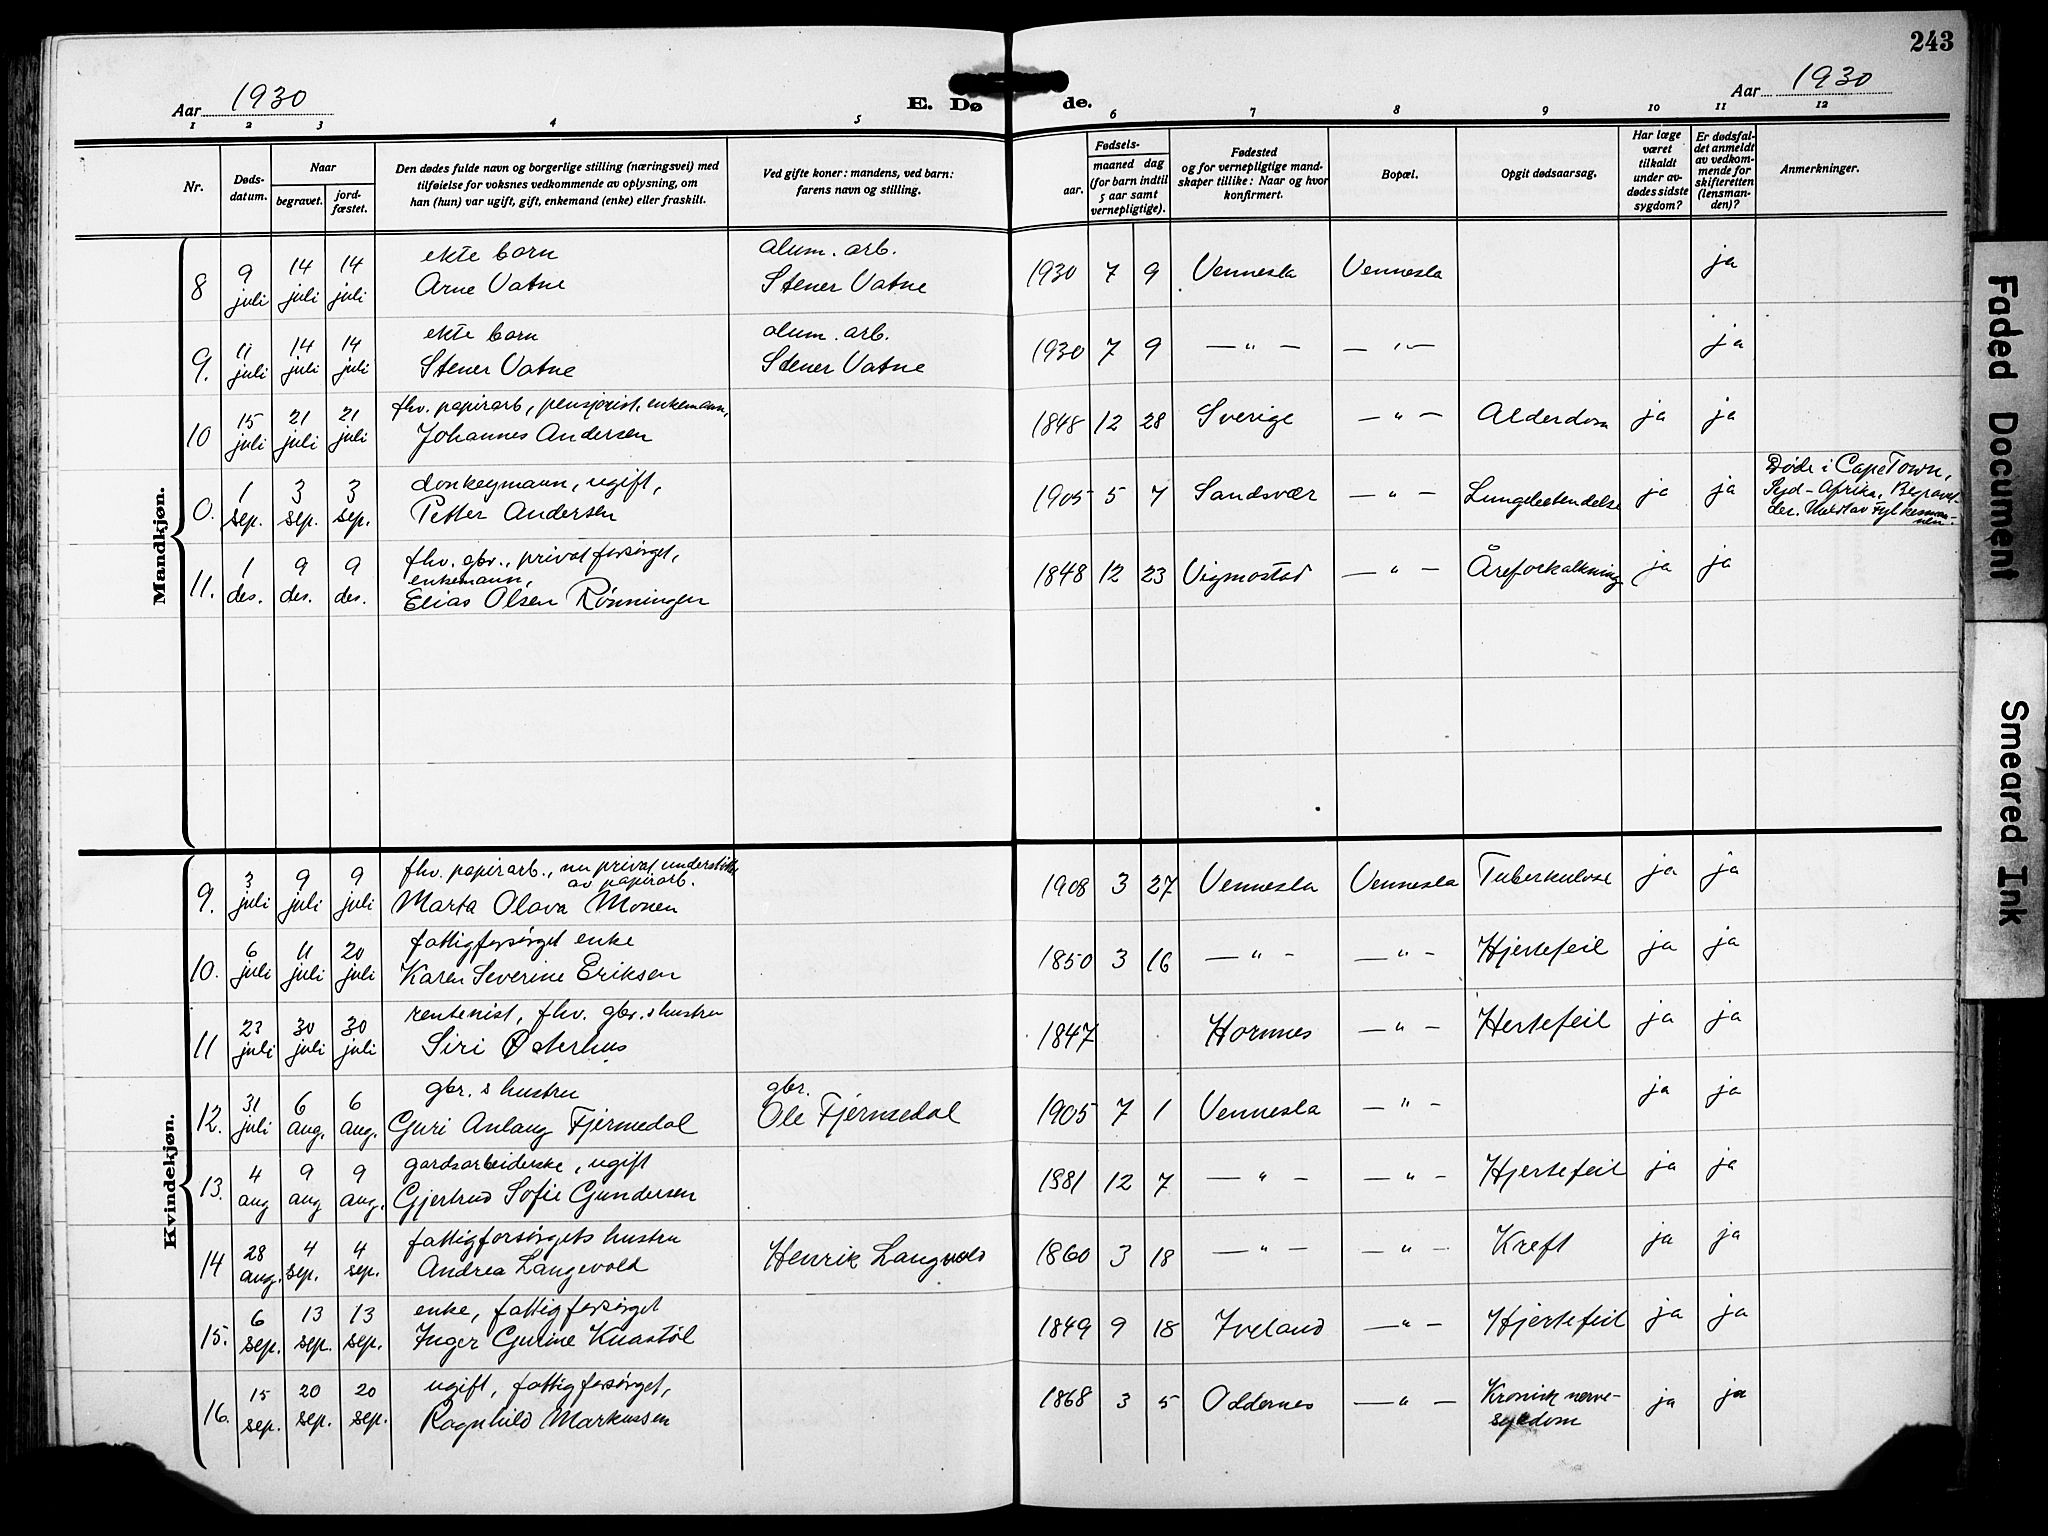 243
Aar 1930
E. Dø de.
Aar 1930
1 2 3 4 5 6 7 8 9 10 11 12
Nr.
Døds-
datum.
Naar
begravet.
jord-
fæstet.
Den dødes fulde navn og borgerlige stilling (næringsvei) med
tilføielse for voksnes vedkommende av oplysning, om
han (hun) var ugift, gift, enkemand (enke) eller fraskilt.
Ved gifte koner: mandens, ved barn:
farens navn og stilling.
Fødsels-
aar.
maaned dag
(for barn indtil
5 aar samt
vernepligtige).
Fødested
og for vernepligtige mand-
skaper tillike: Naar og hvor
konfirmert.
Bopæl.
Opgit dødsaarsag.
Har læge
været
tilkaldt
under av-
dødes sidste
sygdom?
Er dødsfal-
det anmeldt
av vedkom-
mende for
skifteretten
(lensman-
den)?
Anmerkninger.
Mandkjøn.
ekte barn alum. arb.
8 9 juli 14 juli 14 juli Arne Vatne Stener Vatne 1930 7 9 Vennesla Vennesla ja
ekte barn alum. arb.
9. 11 juli 14 juli 14 juli Stener Vatne Stener Vatne 1930 7 9 — " — — " — ja
fhv. papirarb, pensjonist, enkemann,
10 15 juli 21 juli 21 juli Johannes Andersen 1848 12 28 Sverige — " — Alderdom ja ja
donkeymann, ugift,
0. 1 sep. 3 sep. 3 sep. Petter Andersen 1905 5 7 Sandsvær — " — Lungebetendelse ja ja
Døde i CapeTown,
Syd-Afrika, Begravet
der. Meldt av Fylkesman-
nen.
fhv. gbr., privat forsørget,
enkemann,
11. 1 des. 9 des. 9 des. Elias Olsen Rønningen 1848 12 23 Vigmostad — " — Åreforkalkning ja ja
Kvindekjøn.
fhv. papirarb., nu privat understøttet
av papirarb.
9. 3 juli 9 juli 9 juli Marta Olava Monen 1908 3 27 Vennesla Vennesla Tuberkulose ja ja
fattigforsørget enke
10. 6 juli 11 juli 20 juli Karen Severine Eriksen 1850 3 16 — " — — " — Hjertefeil ja ja
rentenist, fhv. gbr.s hustru
11 23 juli 30 juli 30 juli Siri Østerhus 1847 Hornnes — " — Hertefeil ja ja
gbr. s hustru gbr.
12. 31 juli 6 aug. 6 aug. Guri Anlaug Fjermedal Ole Fjermedal 1905 7 1 Vennesla — " — ja ja
gardsarbeiderske, ugift
13. 4 aug 9 aug 9 aug. Gjertrud Sofie Gundersen 1881 12 7 — " — — " — Hjertefeil ja ja
fattigforsørgets hustru
14 28 aug. 4 sep. 4 sep. Andrea Langevold Henrik Langvold 1860 3 18 — " — — " — Kreft ja ja
enke, fattigforsørget
15. 6 sep. 13 sep. 13 sep. Inger Gurine Knastøl 1849 9 18 Iveland — " — Hjertefeil ja ja
ugift, fattigforsørget,
16. 15 sep. 20 sep. 20 sep. Ragnhild Markussen 1868 3 5 Oddernes — " — Kronisk nerve-
sykdom ja ja
Faded Document
Smeared Ink